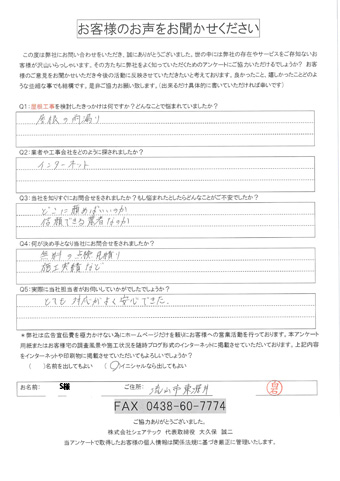 お客様のお声をお聞かせください
この度は弊社にお問い合わせをいただき、誠にありがとうございました。世の中には弊社の存在やサービスをご存知ないお
客様が沢山いらっしゃいます。その方たちに弊社をよく知っていただくためのアンケートにご協力いただけるでしょうか？お
客様のご意見をお聞かせいただき今後の活動に反映させていただきたいと考えております。良かったこと、嬉しかったことどのよ
うな些細な事でも結構です。是非ご協力お願い致します。（出来るだけ具体的に書いていただければ幸いです）
Q1：屋根工事を検討したきっかけは何ですか？どんなことで悩まれていましたか？
屋根の雨漏り
Q2：業者や工事会社をどのように探されましたか？
インターネット
Q3：当社を知りすぐにお問合せをされましたか？もし悩まれたとしたらどんなことがご不安でしたか？
どこに頼めばいいのか
信頼できる業者なのか
Q4：何が決め手となり当社にお問合せをされましたか？
無料の点検見積り
施工実績など
Q5：実際に当社担当者がお伺いしていかがでしたでしょうか？
とても対応がよく安心できた。
＊弊社は広告宣伝費を極力かけない為にホームページだけを頼りにお客様への営業活動を行っております。本アンケート
用紙またはお客様宅の調査風景や施工状況を随時ブログ形式のインターネットに掲載させていただいております。上記内容
をインターネットや印刷物に掲載させていただいてもよろしいでしょうか？
（　）名前を出してもよい　（○）イニシャルなら出してもよい
お名前：　S様　ご住所：　流山市東深井
FAX 0438-60-7774
ご協力ありがとうございました。
株式会社シェアテック　代表取締役　大久保　誠二
当アンケートで取得したお客様の個人情報は関係法規に基づき厳正に管理いたします。